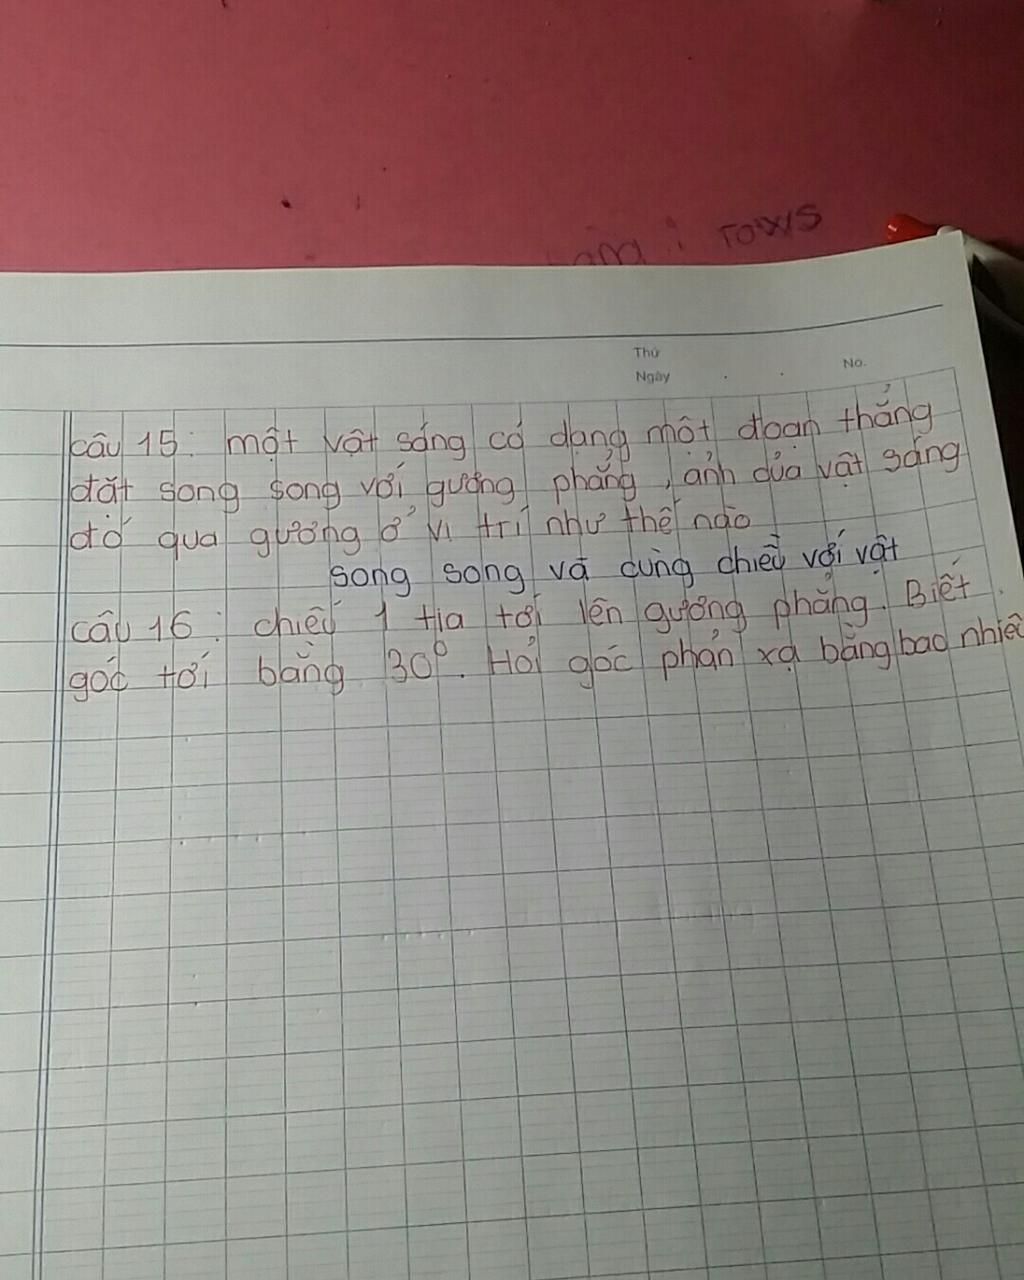 TOWS
Thứ
Ngày
No.
Câu 15: một vật sáng có dạng một đoạn thẳng
đặt song song với gương phẳng, ảnh của vật sáng
đó qua gương ở vị trí như thế nào
song song và cùng chiều với vật
Câu 16: chiếu 1 tia tới lên gương phẳng. Biết
góc tới bằng 30°. Hỏi góc phản xạ bằng bao nhiêu